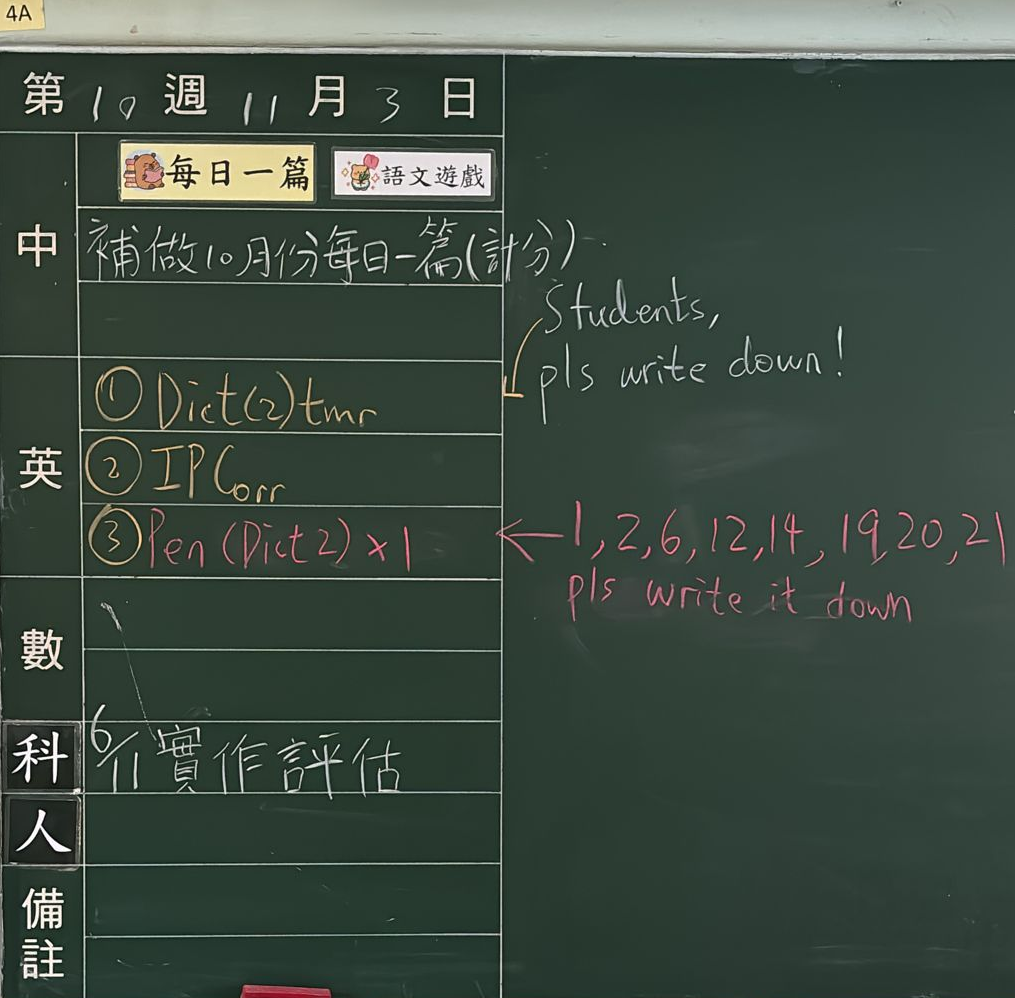 4A
第10週11月3日
每日一篇 語文遊戲
中
補做10月份每日一篇(計分)
Students,
pls write down!
英
① Dict(2)tmr
② IP Corr
③ Pen (Dict 2) × 1
←1, 2, 6, 12, 14, 19, 20, 21
pls write it down
數
科
6/11 實作評估
人
備註